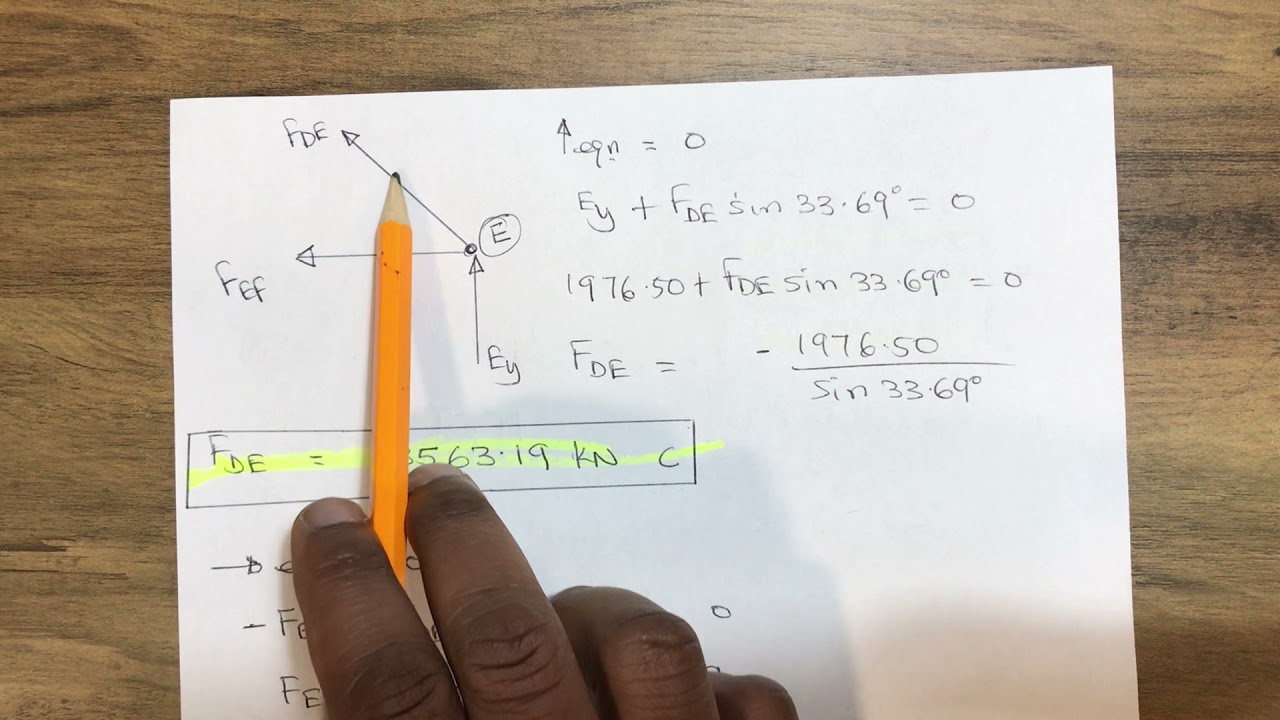 FDE
E
FEF
Ey
↑ eqn = 0
Ey + FDE sin 33.69° = 0
1976.50 + FDE sin 33.69° = 0
FDE = - 1976.50
sin 33.69°
FDE = 3563.19 KN C
→
- FE 0
FE